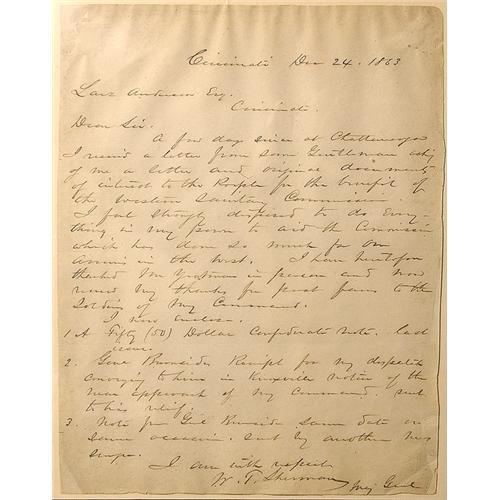 Cincinnati Dec 24. 1863
Larz Anderson Esq.
Cincinnati.
Dear Sir.
A few days since at Chattanooga
I received a letter from some Gentleman asking
of me a letter and original documents
of interest to the People for the benefit of
the Western Sanitary Commission.
I feel strongly disposed to do every-
thing in my power to aid the Commission
which has done so much for our
Armies in the West. I have heretofore
thanked Mr Yeatman in person and now
renew my thanks for past favors to the
Soldiers of my Command.
I now enclose.
1 A Fifty (50) Dollar Confederate Note. last
issue.
2. Genl Burnsides Receipt for my despatch
conveying to him in Knoxville notice of the
near approach of my Command. sent
to his relief.
3. Note from Genl Burnside same date on
same occasion. sent by another mes
senger.
I am with respect
W. T. Sherman
Maj Genl